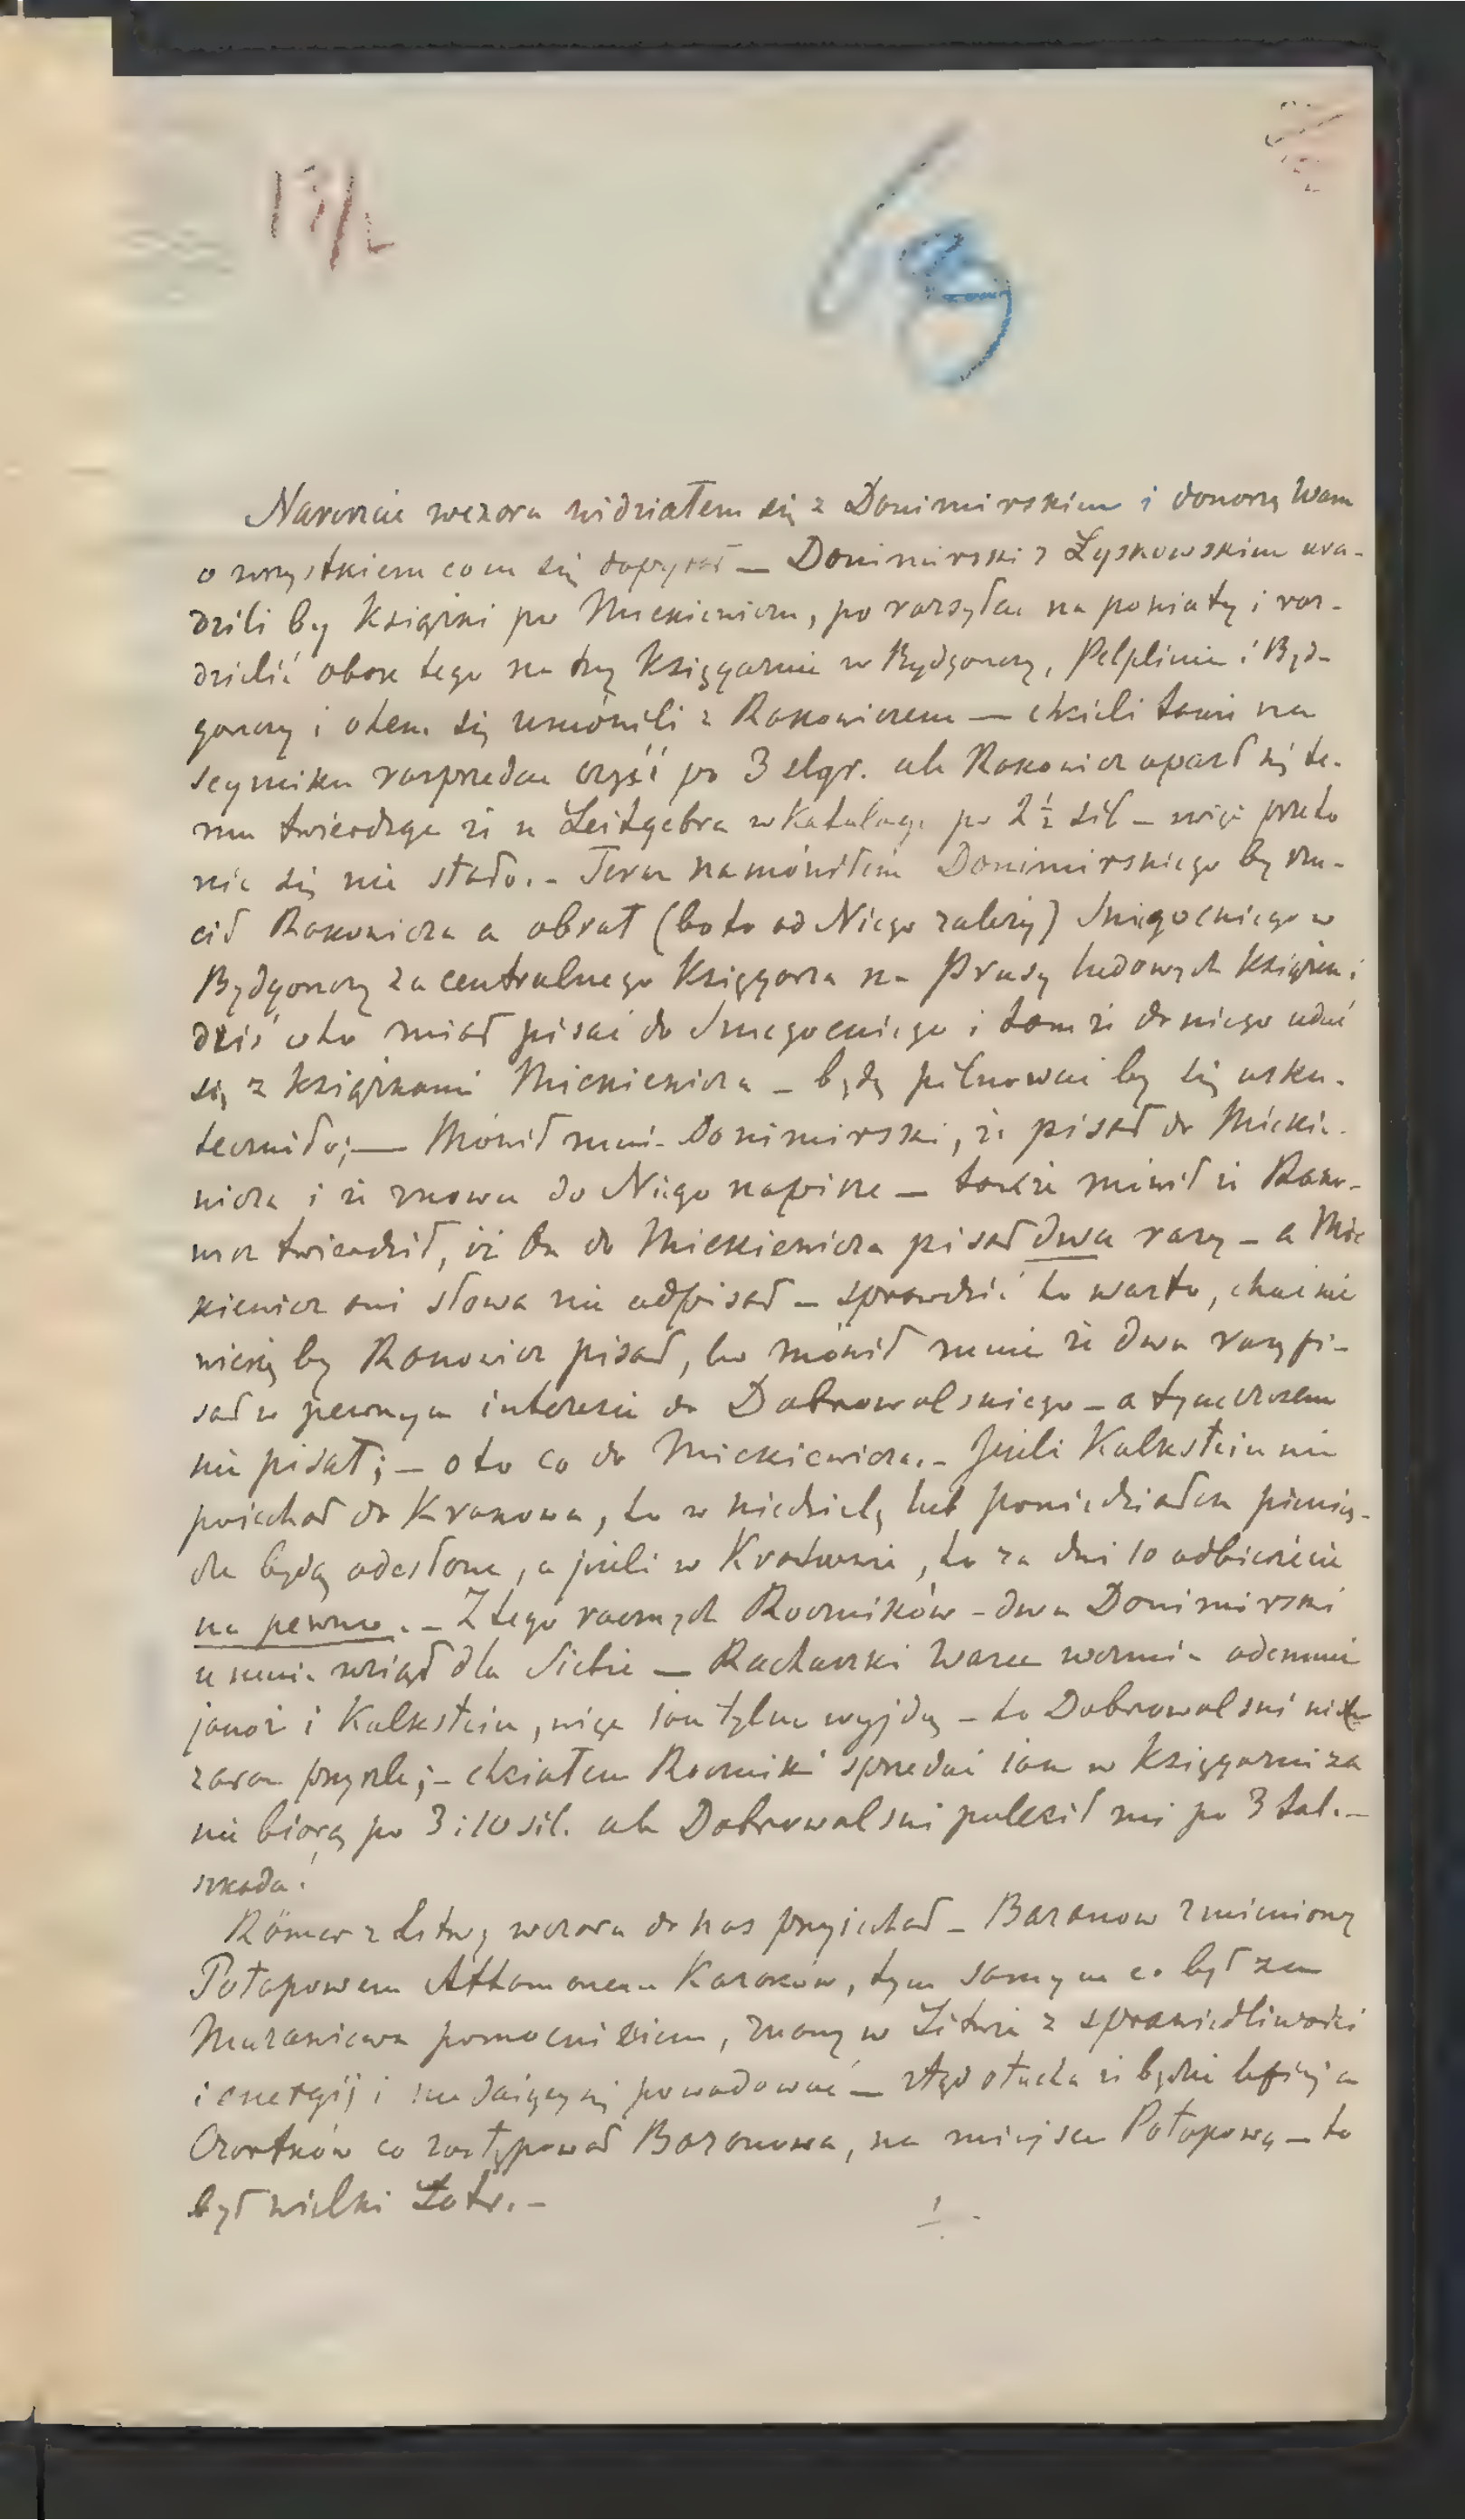 13/2
Nareszcie wczora widziałem się z Donimirskim i donoszę Wam
o wszystkiem com się dopytał — Donimirski z Łyskowskim ura-
dzili by książki po Mickiewiczu, po rozsyłać na powiaty i roz-
dzielić obok tego na trzy księgarnie w Bydgoszczy, Pelplinie i Byd-
goszczy i otem się umówili z Rakowiczem — chcieli także na
seymiku rosprzedać część po 3 slgr. ale Rakowicz oparł się te-
mu twierdząc iż u Leitgebra w Katalogu po 2½ sil — więc przeto
nic się nie stało. — Teraz namówiłem Donimirskiego by rzu-
cił Rakowicza a obrał (bo to od Niego zależy) Smiegockiego w
Bydgoszczy za centralnego Księgarza na Prusy ludowych książek i
dziś oto miał pisać do Smiegockiego i tamże do niego udać
się z książkami Mickiewicza — będę pilnować by się usku-
teczniło; — Mówił mnie Donimirski, że pisał do Mickie-
wicza i że znowu do Niego napisze — także mówił iż Rako-
wicz twierdził, iż On do Mickiewicza pisał dwa razy — a Mic
kiewicz ani słowa nie odpisał — sprawdzić to warto, choć nie
wierzę by Rakowicz pisał, bo mówił mnie że dwa razy pi-
sał w pewnym interesie do Dobrowolskiego — a tymczasem
nie pisał; — oto co do Mickiewicza. — Jeżeli Kalkstein nie
pojechał do Krakowa, to w niedzielę lub poniedziałek pienią-
dze będą odesłane, a jeżeli w Krakowie, to za dni 10 odbierzecie
na pewno. — Z tego rocznych Roczników — dwa Donimirski
u mnie wziął dla Siebie — Racharski Wasze weźmie odemnie
jakoż i Kalkstein, więc jak tylko wyjdą — to Dobrowolski niech
zaraz przyszle; — chciałem Roczniki sprzedać tam w Księgarni za
nie biorą po 3 i 10 sil. ale Dobrowolski polecił mi po 3 tal. —
szkoda!
Römer z Litwy wczora do nas przyjechał — Baranow zmieniony
Potapowem Attamanem Kozaków, tym samym co był za
Murawiewa pomocnikiem, znany w Litwie z sprawiedliwości
i energij i nie dający się powodować — ztąd otucha iż będzie lepiej a
Czortków co zastępował Baranowa, na miejscu Potapowa — to
był wielki Łotr. —